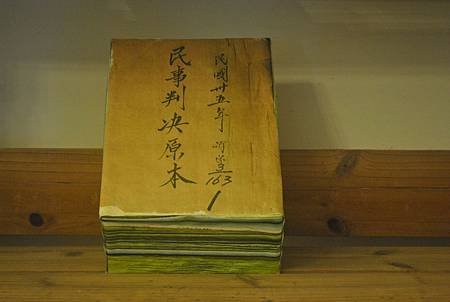 民國卅五年
163
1
民事判决原本